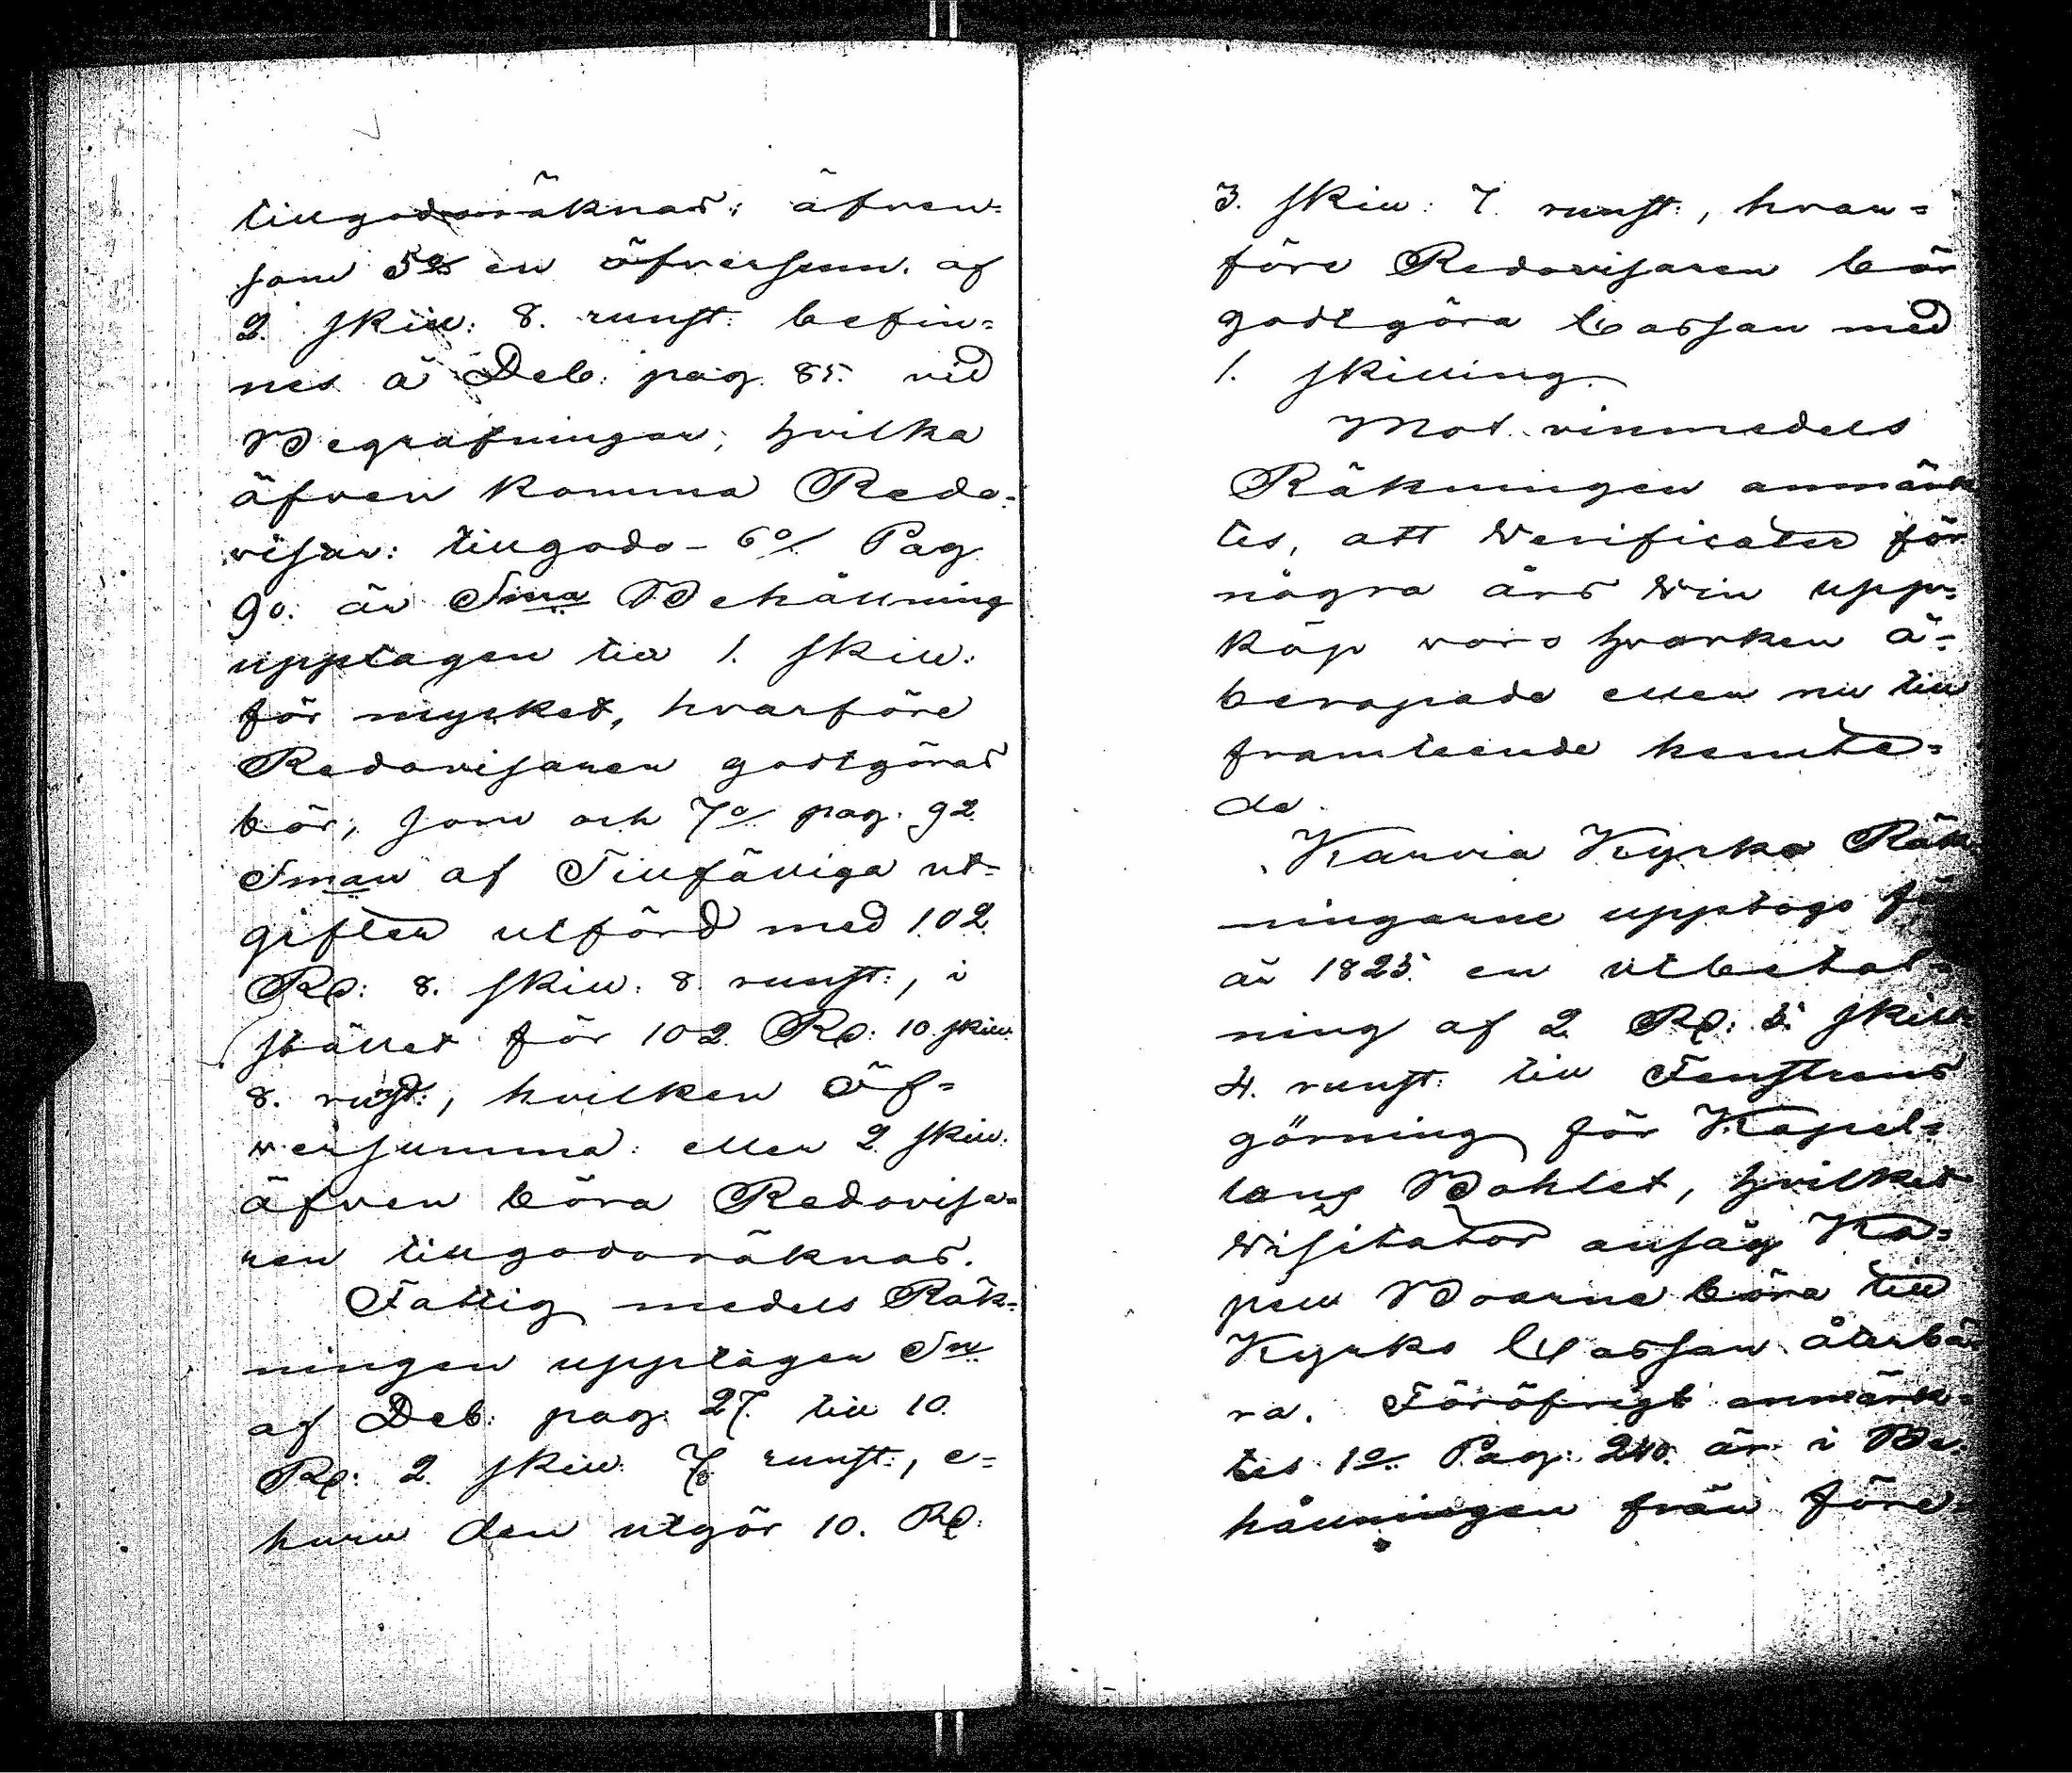 tillgodoräknas; äfven=
som 5o en öfversum. af
2. skill: 8. runst: befin=
nes å Deb: pag. 85. vid
Begrafningar, hvilka
äfven komma Redo-
visar: tillgodo - 6o/ Pag.
90. är Sma Behållning
upptagen till 1. skill:
för mycket, hvarföre
Redovisaren godtgöras
bör, som och 7o/ pag. 92.
Sman af Tillfälliga ut-
gifter utförd med 102.
Rb: 8. skill: 8. runst:, i
stället för 102. Rb: 10. skill:
8. runst:, hvilken Öf=
versumma: eller 2. skill:
äfven böra Redovisa=
ren tillgodoräknas.
Fattig medels Räk-
ningen upptagen Sn
af Deb: pag: 27. till 10.
Rb: 2. skill: 7. runst:, e=
huru den utgör 10. Rb:
3. skill: 7. runst:, hvar=
före Redovisaren bör
godtgöra Cassan med
1. skilling.
Mot vinmedels
Räkningen anmärk
tes, att Verificater för
några års Vin upp=
köp voro hvarken å=
beropade eller nu till
framteende hemta=
de.
Karvia Kyrko Räk
ningarne upptogo fö
år 1825. en utbetal=
ning af 2. Rb: 5. skill:
4. runst: till Fenstrens
görning för Kapel=
lans Bohlet, hvilket
Visitator ansåg Ka=
pell Boarne böra till
Kyrko Cassan återbä
ra. Föröfrigt anmärk=
tes 1o. Pag: 240. är i Be=
hållningen från före=